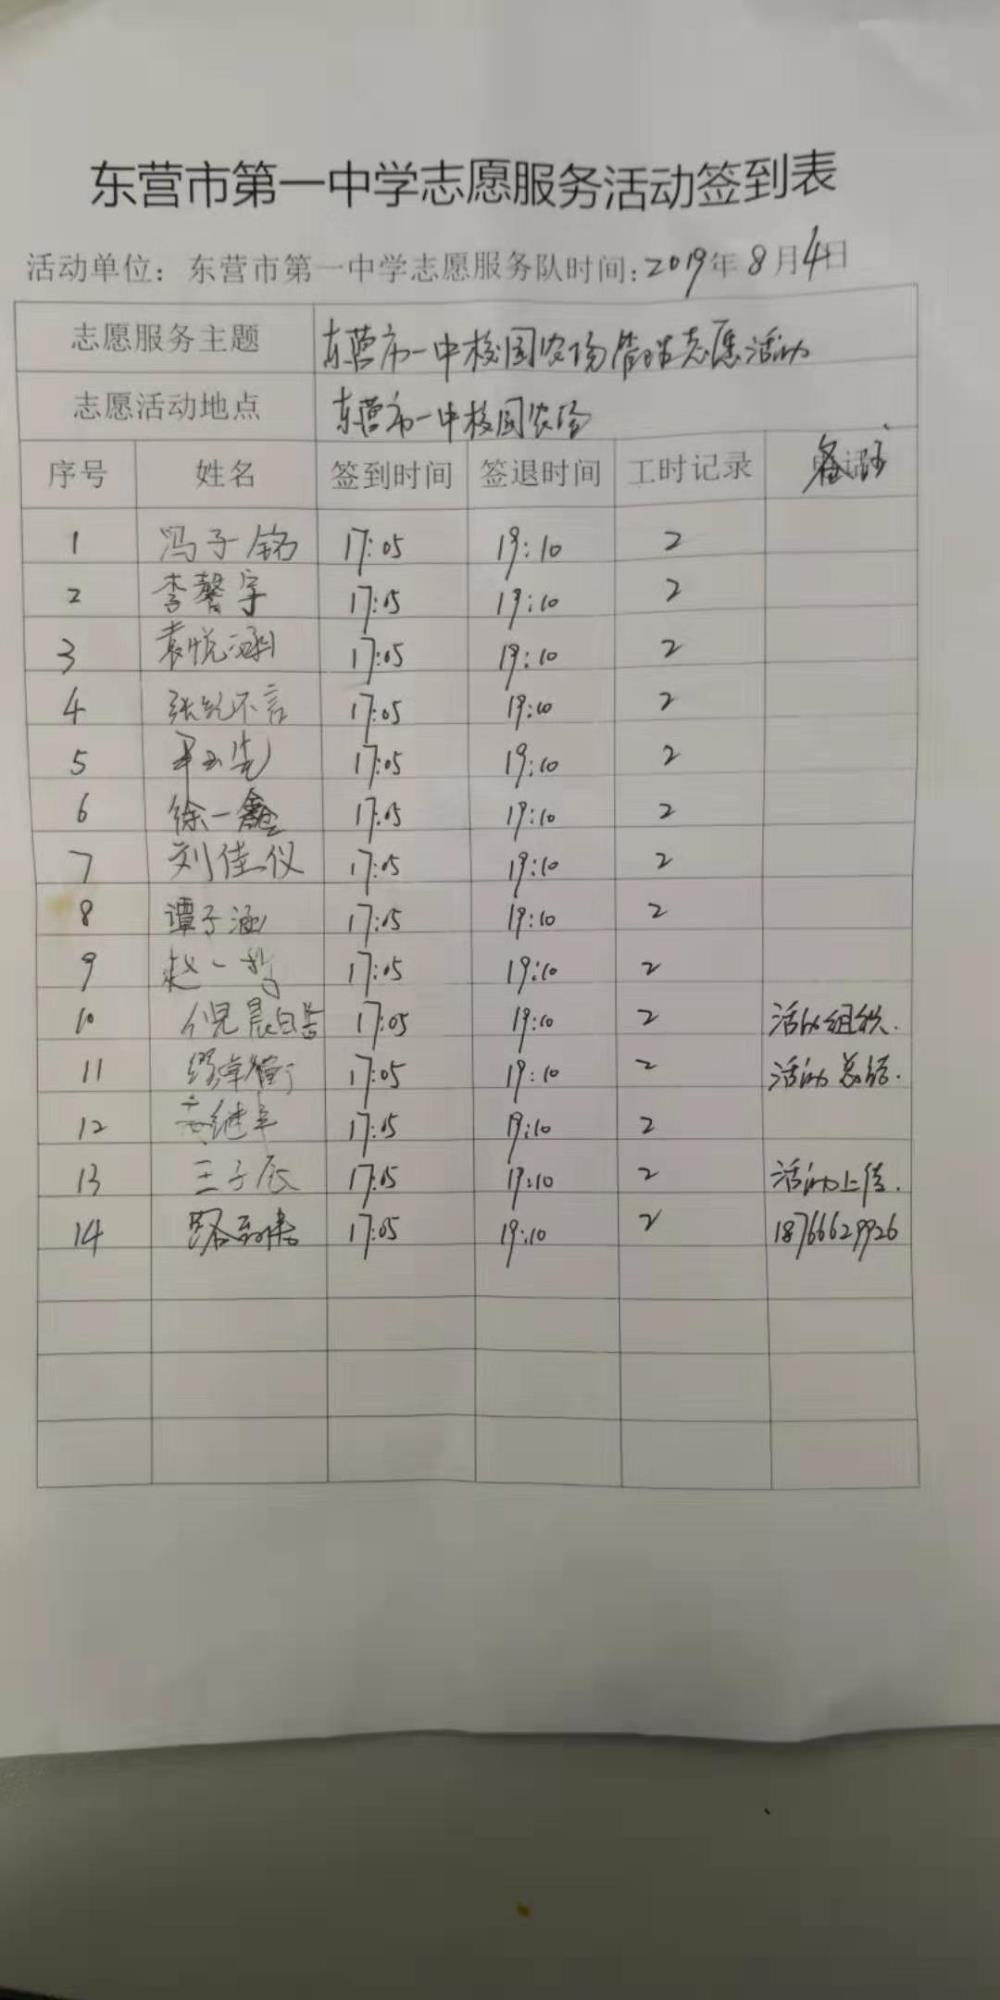 东营市第一中学志愿服务活动签到表
活动单位：东营市第一中学志愿服务队时间：2019年8月4日
志愿服务主题 东营市一中校园农场管理志愿活动
志愿活动地点 东营市一中校园农场
序号 姓名 签到时间 签退时间 工时记录 备注
1 冯子铭 17:05 19:10 2
2 李馨宇 17:05 19:10 2
3 袁悦涵 17:05 19:10 2
4 17:05 19:10 2
5 17:05 19:10 2
6 徐一鑫 17:05 19:10 2
7 刘佳仪 17:05 19:10 2
8 谭子涵 17:05 19:10 2
9 赵一 17:05 19:10 2
10 倪晨 17:05 19:10 2 活动组织.
11 17:05 19:10 2 活动总结.
12 17:05 19:10 2
13 王子辰 17:05 19:10 2 活动上传.
14 17:05 19:10 2 18766629926